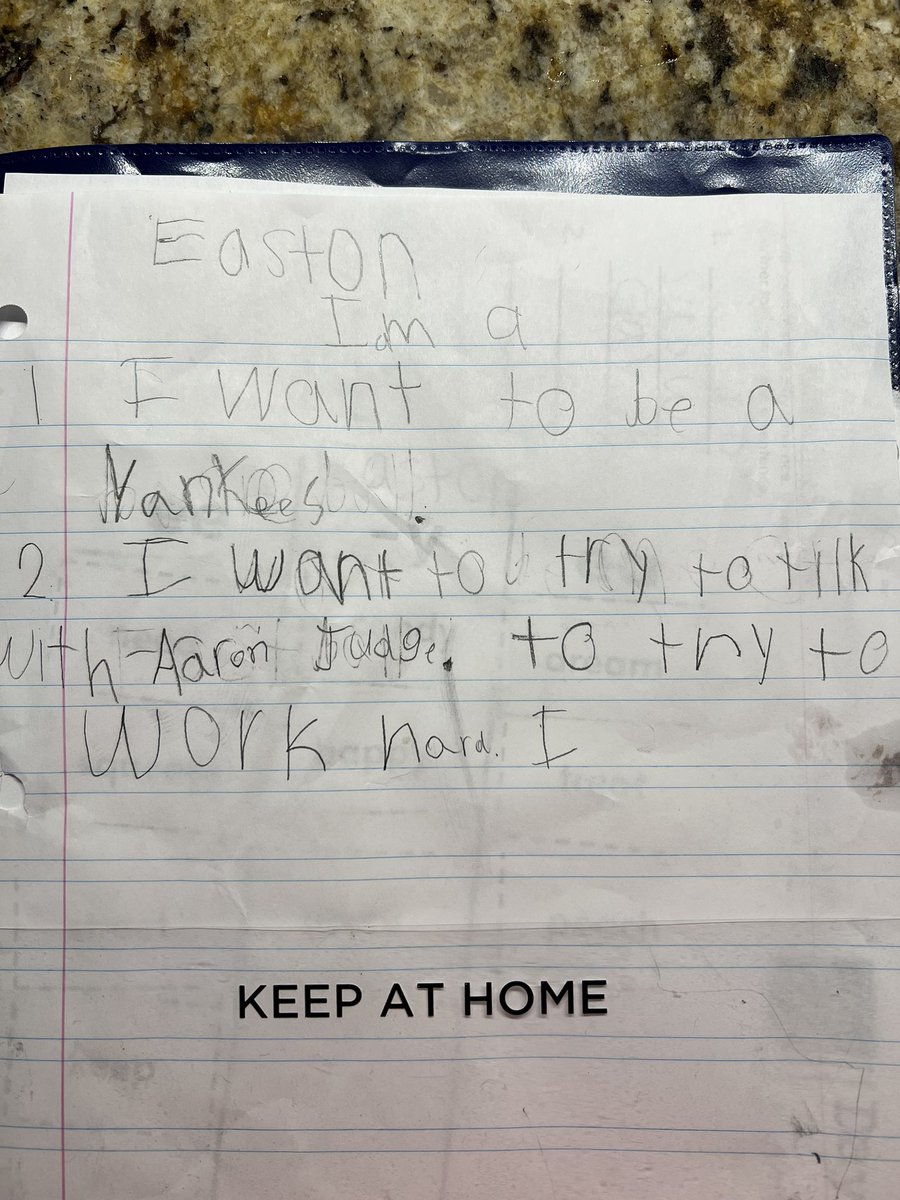 Easton
I am a
1 I want to be a
Yankees.
2. I want to try to tilk
with Aaron Judge. to try to
work hard. I
KEEP AT HOME